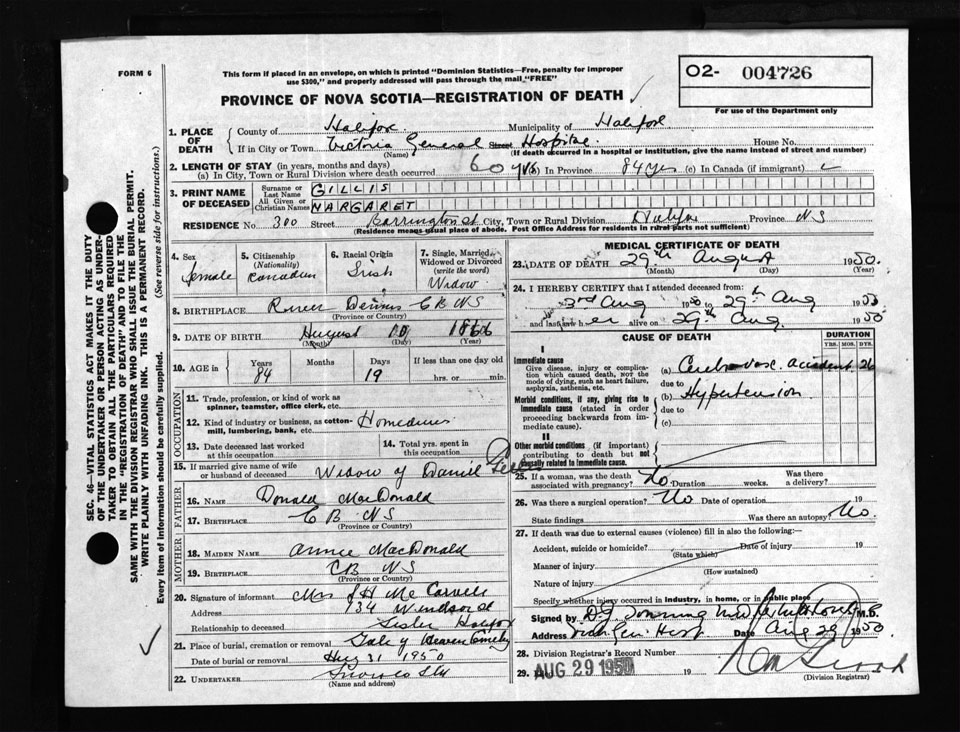 FORM 6
This form if placed in an envelope, on which is printed "Dominion Statistics—Free, penalty for improper
use $300," and properly addressed will pass through the mail "FREE"
O2- 004726
For use of the Department only
PROVINCE OF NOVA SCOTIA—REGISTRATION OF DEATH
1. PLACE OF DEATH { County of Halifax Municipality of Halifax
If in City or Town Victoria General Street Hospital House No.
(Name) (If death occurred in a hospital or institution, give the name instead of street and number)
2. LENGTH OF STAY (in years, months and days)
(a) In City, Town or Rural Division where death occurred 60 yrs (b) In Province 84 yrs (c) In Canada (if immigrant)
3. PRINT NAME OF DECEASED { Surname or Last Name GILLIS
All Given or Christian Names MARGARET
RESIDENCE No. 300 Street Barrington St City, Town or Rural Division Halifax Province NS
(Residence means usual place of abode. Post Office Address for residents in rural parts not sufficient)
4. Sex female
5. Citizenship (Nationality) Canadian
6. Racial Origin Irish
7. Single, Married, Widowed or Divorced (write the word) Widow
8. BIRTHPLACE River Dennis CB NS
(Province or Country)
9. DATE OF BIRTH August 10 1866
(Month) (Day) (Year)
10. AGE in { Years 84 Months Days 19 If less than one day old hrs. or min.
OCCUPATION
11. Trade, profession, or kind of work as spinner, teamster, office clerk, etc.
12. Kind of industry or business, as cotton-mill, lumbering, bank, etc.
13. Date deceased last worked at this occupation
14. Total yrs. spent in this occupation
15. If married give name of wife or husband of deceased Widow of Daniel
FATHER
16. NAME Donald MacDonald
17. BIRTHPLACE CB NS
(Province or Country)
MOTHER
18. MAIDEN NAME Annie MacDonald
19. BIRTHPLACE CB NS
(Province or Country)
20. Signature of informant Mrs J H Mc
Address 134 Windsor St
Relationship to deceased Sister Halifax
21. Place of burial, cremation or removal Gate of Heaven Cemetry
Date of burial or removal Aug 31 1950
22. UNDERTAKER
(Name and address)
MEDICAL CERTIFICATE OF DEATH
23. DATE OF DEATH 29th August 1950.
(Month) (Day) (Year)
24. I HEREBY CERTIFY that I attended deceased from:
3rd Aug 1950 to 29th Aug 1950
and last saw her alive on 29th Aug. 1950
CAUSE OF DEATH
DURATION
YRS. MOS. DYS.
I
Immediate cause
Give disease, injury or complication which caused death, not the mode of dying, such as heart failure, asphyxia, asthenia, etc.
(a) Cerebrovasc. accident 26
due to
Morbid conditions, if any, giving rise to immediate cause (stated in order proceeding backwards from immediate cause).
(b) Hypertension
due to
(c)
II
Other morbid conditions (if important) contributing to death but not causally related to immediate cause.
25. If a woman, was the death associated with pregnancy? No Duration weeks. Was there a delivery?
26. Was there a surgical operation? No Date of operation 19
State findings Was there an autopsy? No.
27. If death was due to external causes (violence) fill in also the following:—
Accident, suicide or homicide? Date of injury 19
(State which)
Manner of injury
(How sustained)
Nature of injury
Specify whether injury occurred in industry, in home, or in public place
Signed by M.D.
Address Vict Gen Hosp Date Aug 29 1950
28. Division Registrar's Record Number
29. AUG 29 1950 19
(Division Registrar)
SEC. 46—VITAL STATISTICS ACT MAKES IT THE DUTY
OF THE UNDERTAKER OR PERSON ACTING AS UNDERTAKER TO OBTAIN ALL THE PARTICULARS REQUIRED
IN THE "REGISTRATION OF DEATH" AND TO FILE THE
SAME WITH THE DIVISION REGISTRAR WHO SHALL ISSUE THE BURIAL PERMIT.
WRITE PLAINLY WITH UNFADING INK. THIS IS A PERMANENT RECORD.
Every item of information should be carefully supplied. (See reverse side for instructions.)